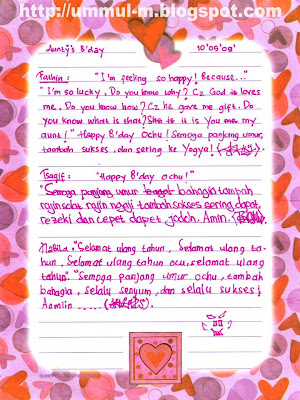 http://ummul-m.blogspot.com
Aunty's B'day 10'09'09'
Fathin: "I'm feeling so happy! Because..."
"I'm so lucky, Do you know why? Cz God is loves
me, Do you know how? Cz he gave me gift. Do
you know what is that? She is it is You are my
aunt!" Happy B'day Ochu! Semoga panjang umur,
tambah sukses, dan sering ke Yogya!
Tsaqif: "Happy B'day ochu!"
"Semoga panjang umur bahagia tambah
rajin solat rajin ngaji tambah sukses sering dapat
rezeki dan cepet dapet jodoh. Amin.
Nabila: "Selamat ulang tahun, Selamat ulang ta-
hun, Selamat ulang tahun ocu, selamat ulang
tahun". "Semoga panjang umur ochu, tambah
bahagia, selalu senyum, dan selalu sukses!
Aamiin .....